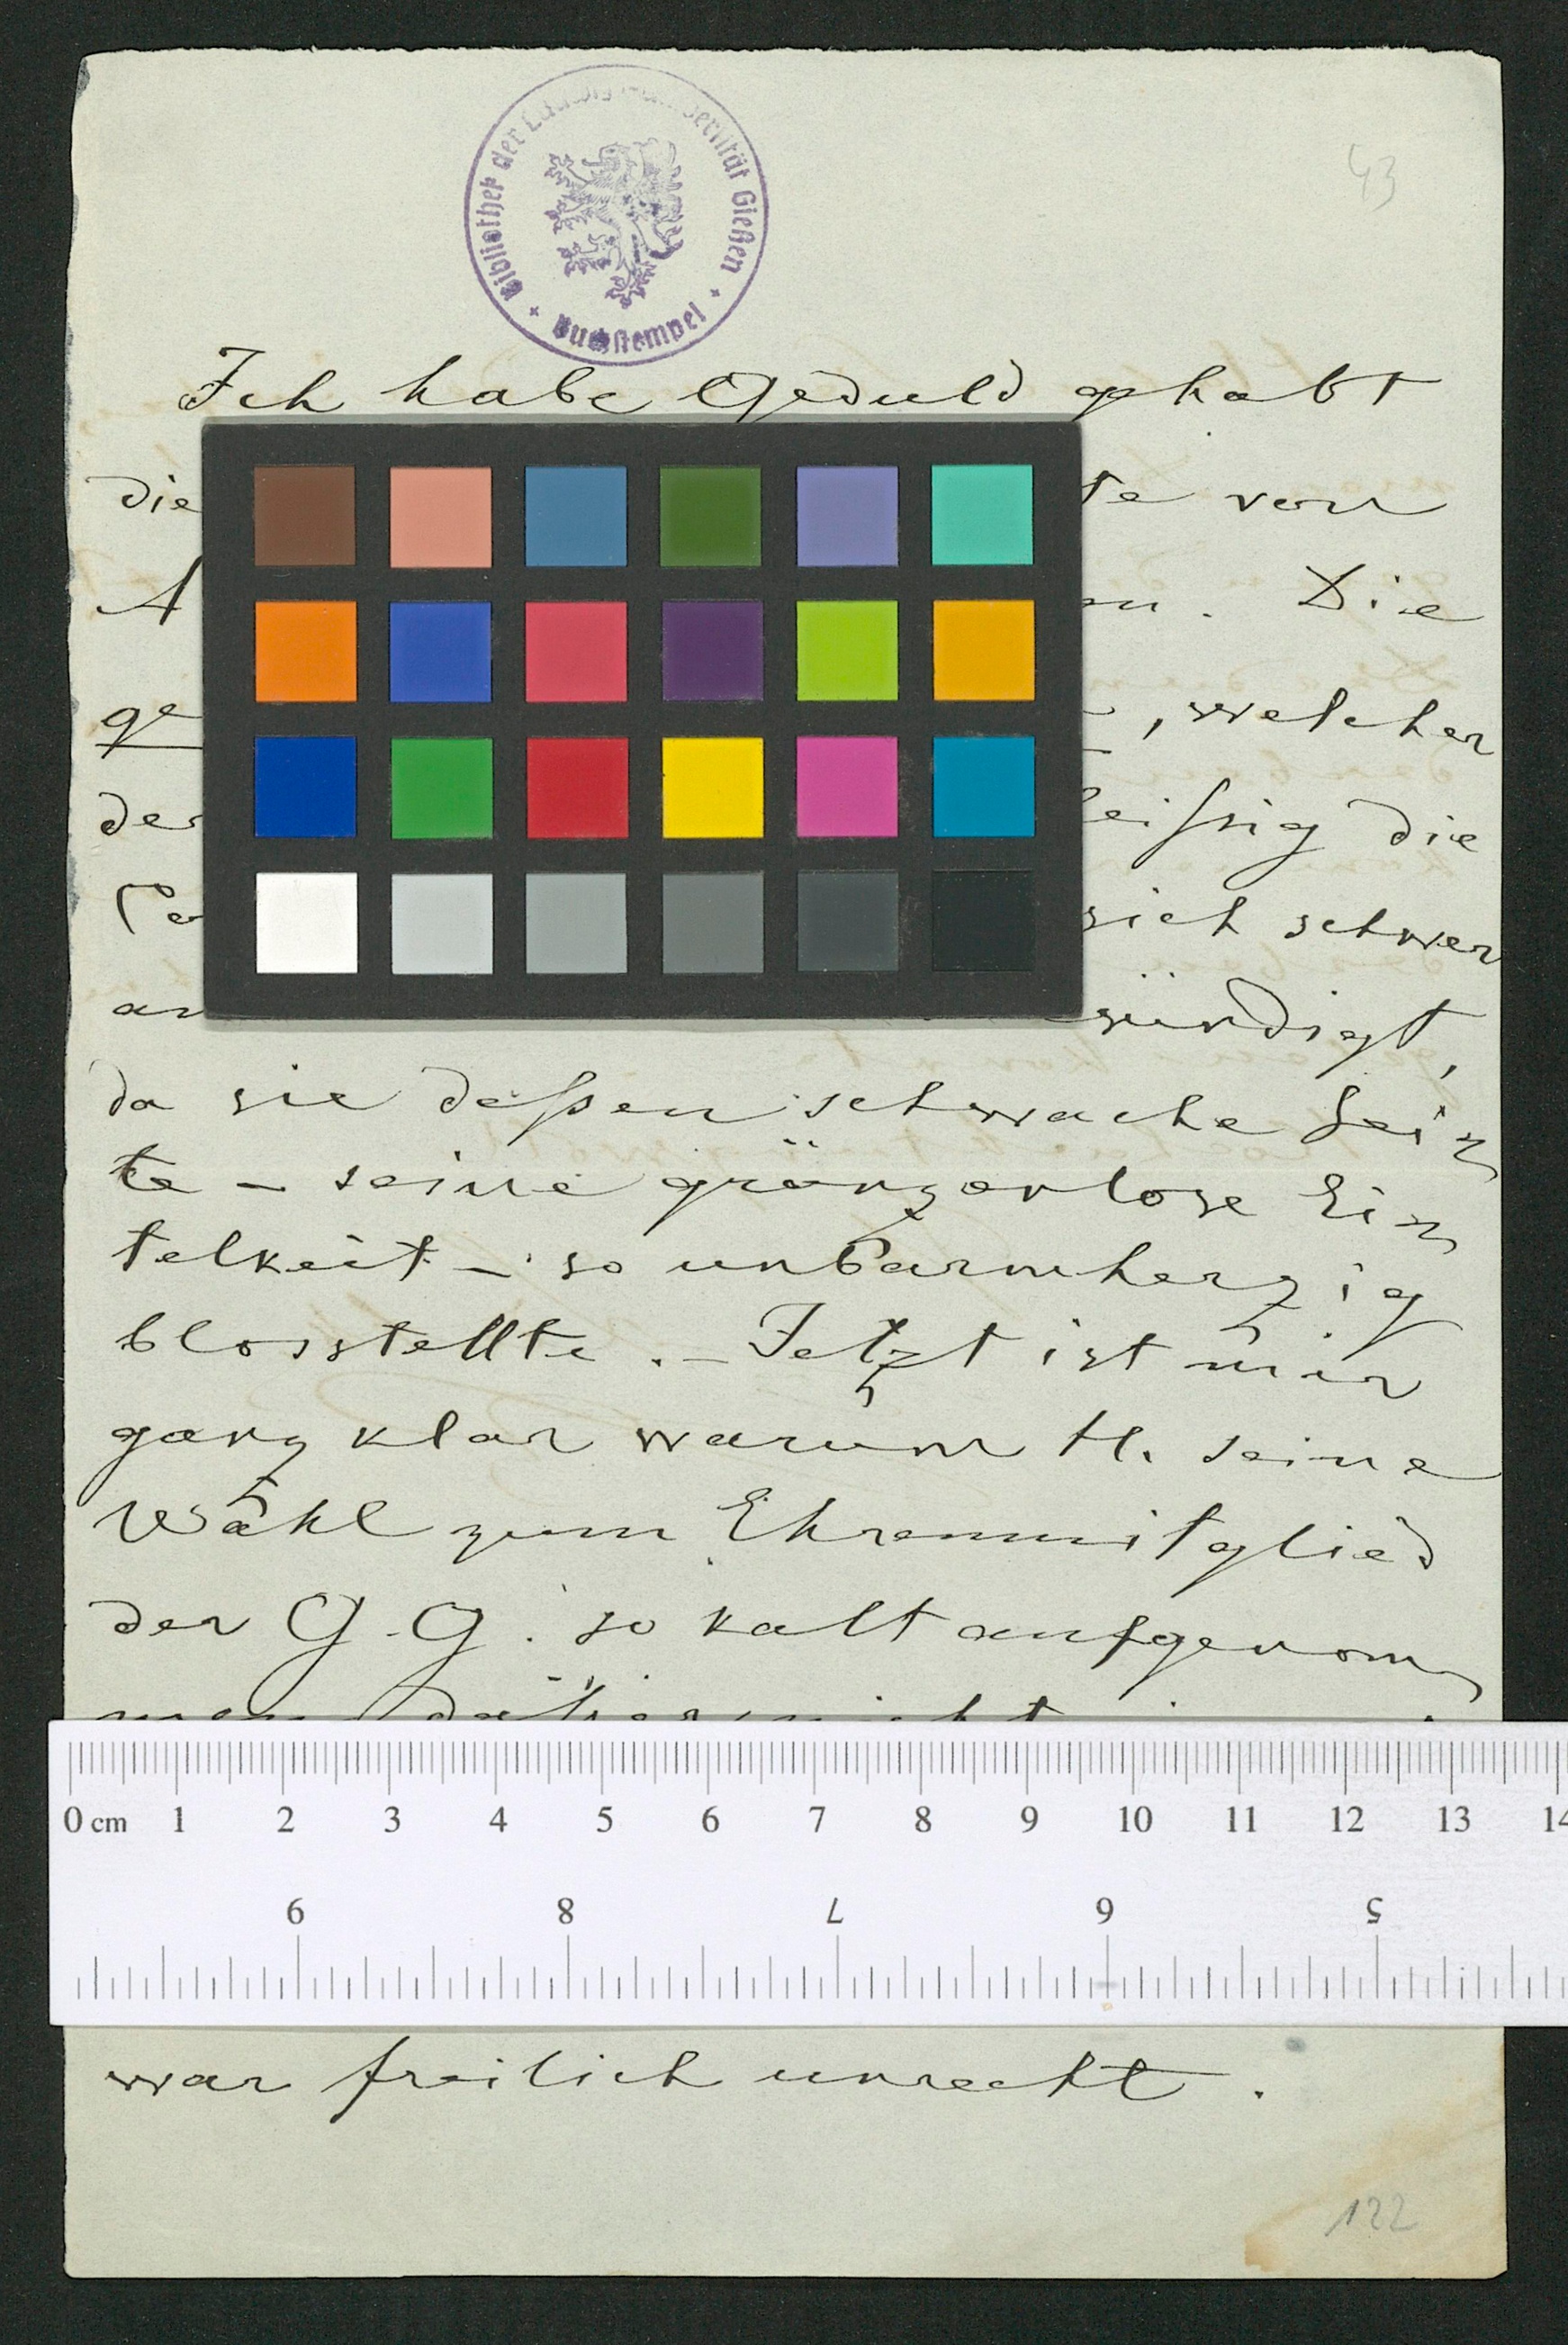 Bibliothek der Ludwigs-Universität Gießen
Buchstempel
43
Ich habe Geduld gehabt
die te von
A en. Die
ge , welcher
der eissig die
sich schwer
an würdigt,
da sie dessen schwache Sei-
te – seine gränzenlose Ei-
telkeit – so unbarmherzig
blosstellte. – Jetzt ist mir
ganz klar warum H. seine
Wahl zum Ehrenmitglied
der G. G. so kalt aufgenom-
men nicht
0 cm 1 2 3 4 5 6 7 8 9 10 11 12 13 14
9 8 7 6 5
war freilich unrecht.
122